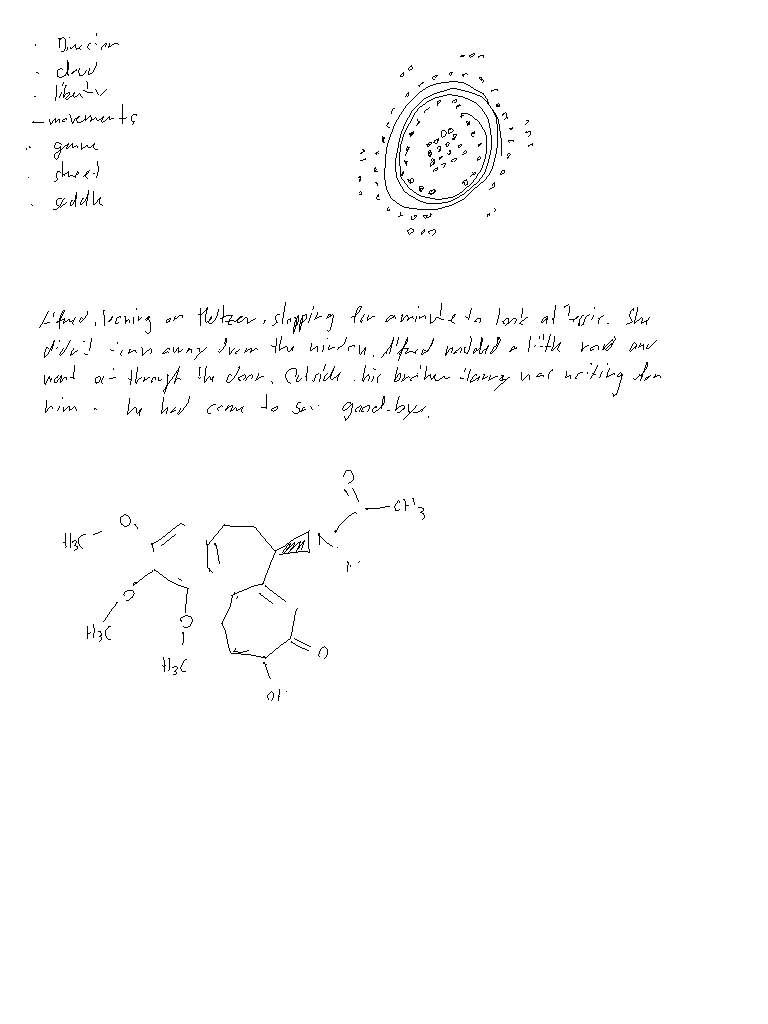 · Direction
· cloud
· liberty
- movements
· game
· street
· saddle
Alfred, leaning on Meltzer, stopping for a minute to look at Jessie. She
didn't turn away from the window. Alfred nodded a little and
went out through the door. Outside, his brother was waiting for
him. he had come to say good-bye.
O
H3C O N CH3
O
H3C O O
H3C
OH